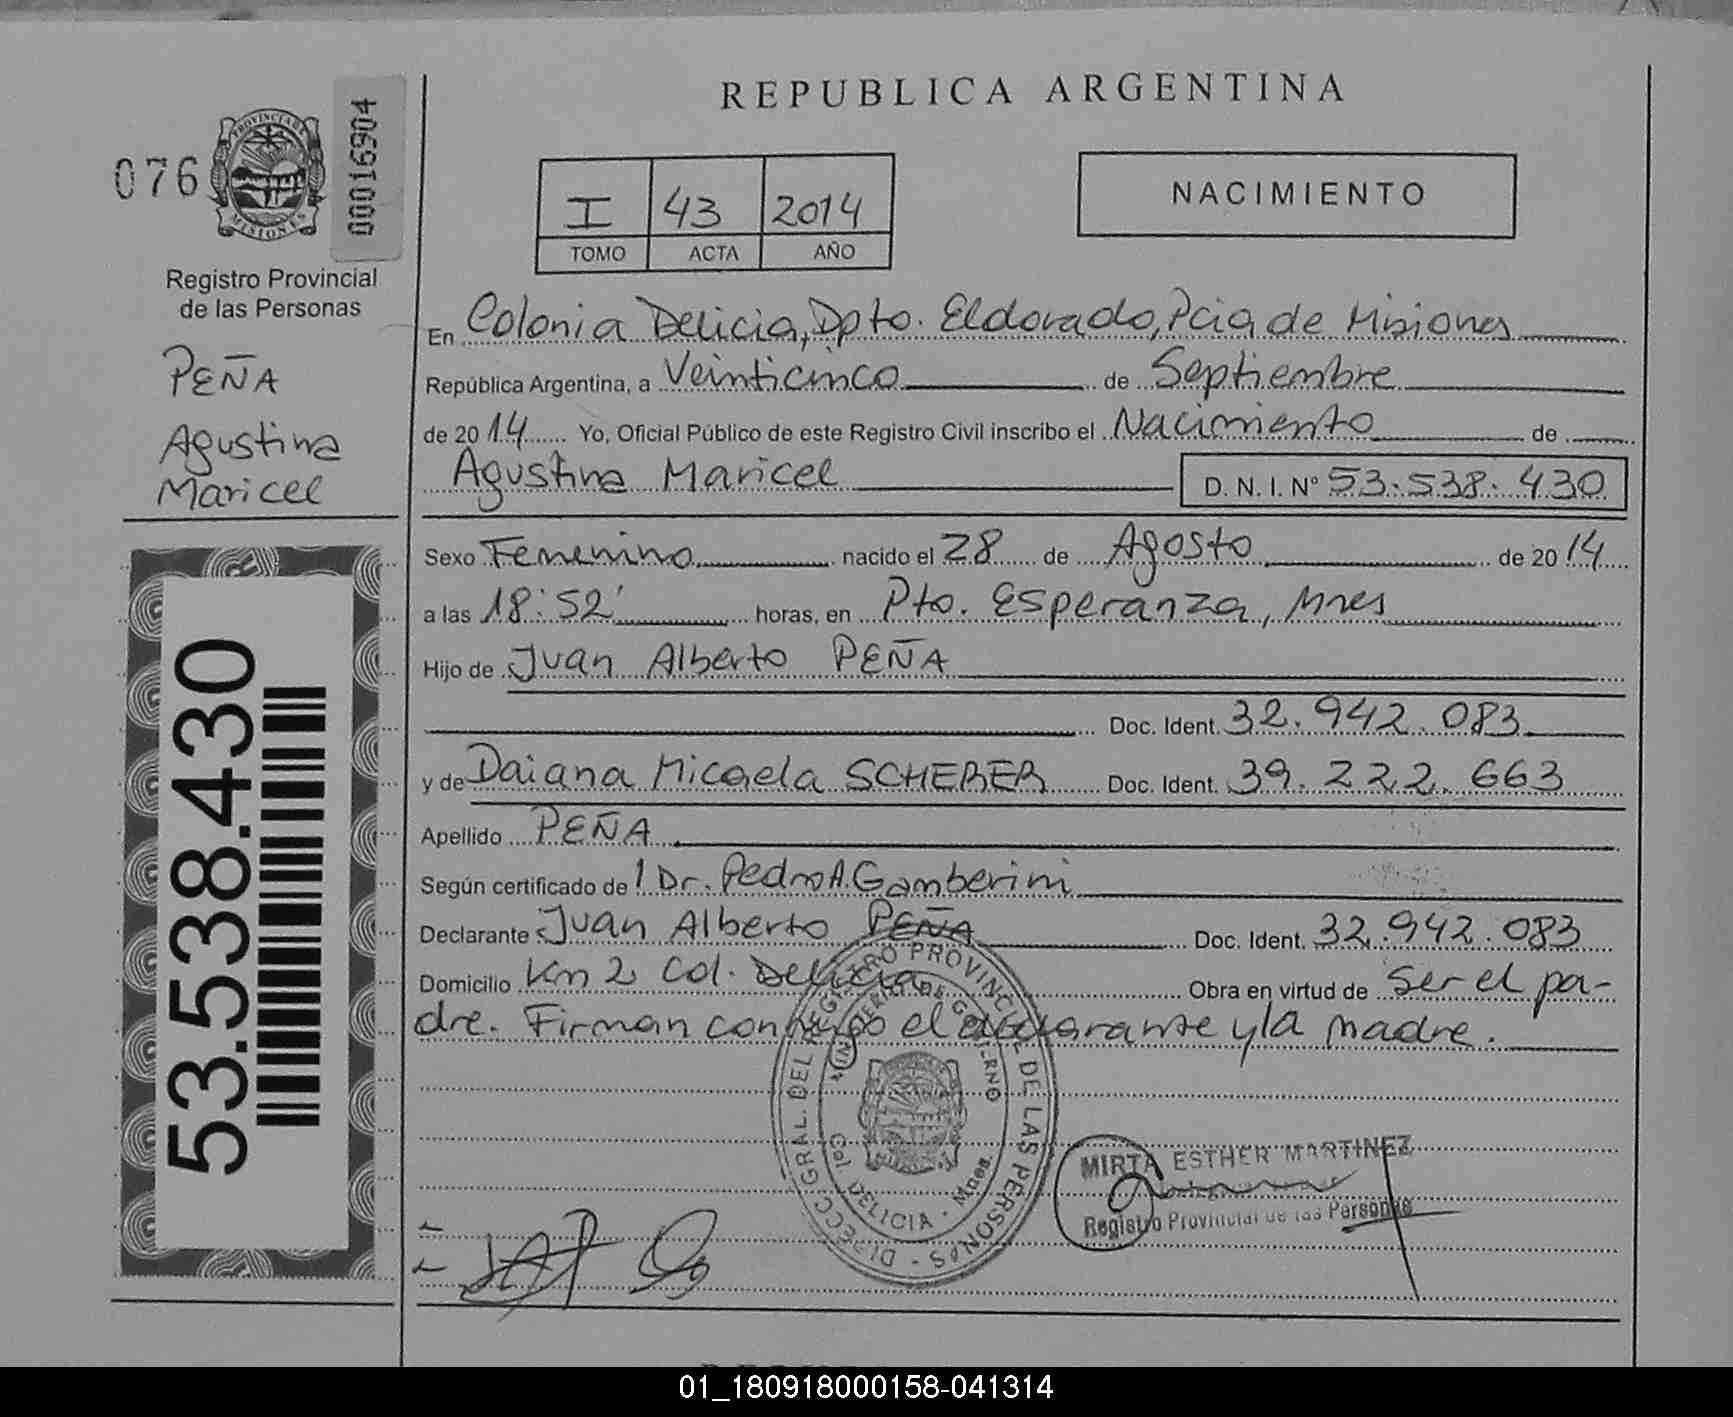 REPUBLICA ARGENTINA
076
PROVINCIA DE
MISIONES
00016904
Registro Provincial
de las Personas
PEÑA
Agustina
Maricel
53.538.430
I 43 2014
TOMO ACTA AÑO
NACIMIENTO
En Colonia Delicia, Dpto. Eldorado, Pcia de Misiones
República Argentina, a Veinticinco de Septiembre
de 2014 Yo, Oficial Público de este Registro Civil inscribo el Nacimiento de
Agustina Maricel D. N. I. N° 53.538.430
Sexo Femenino nacido el 28 de Agosto de 2014
a las 18:52' horas, en Pto. Esperanza, Mnes
Hijo de Juan Alberto PEÑA
Doc. Ident. 32.942.083
y de Daiana Micaela SCHERER Doc. Ident. 39.222.663
Apellido PEÑA
Según certificado de 1 Dr. Pedro A. Gamberini
Declarante Juan Alberto PEÑA Doc. Ident. 32.942.083
Domicilio Km 2 Col. Delicia Obra en virtud de Ser el pa-
dre. Firman conmigo el declarante y la madre.
DIRECC GRAL. DEL REGISTRO PROVINCIAL DE LAS PERSONAS
MINISTERIO DE GOBIERNO
Col. DELICIA - Mnes.
MIRTA ESTHER MARTINEZ
Registro Provincial de las Personas
01_180918000158-041314